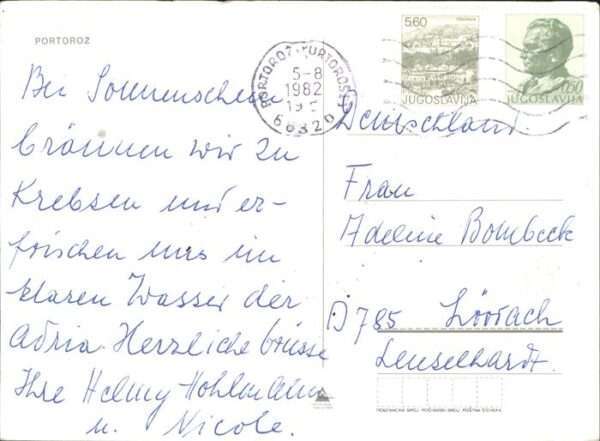 PORTOROŽ
Bei Sonnenschein
bräunen wir zu
Krebsen und er-
frischen uns im
klaren Wasser der
Adria. Herzliche Grüsse
Ihre Helmy Hohlmann
u. Nicole.
PORTOROŽ-PORTOROSE
5-8
1982
66320
5,60
JUGOSLAVIJA
0,60
JUGOSLAVIJA
Deutschland.
Frau
Adeline Bombeck
D 785 Lörrach
Leuselhardt.